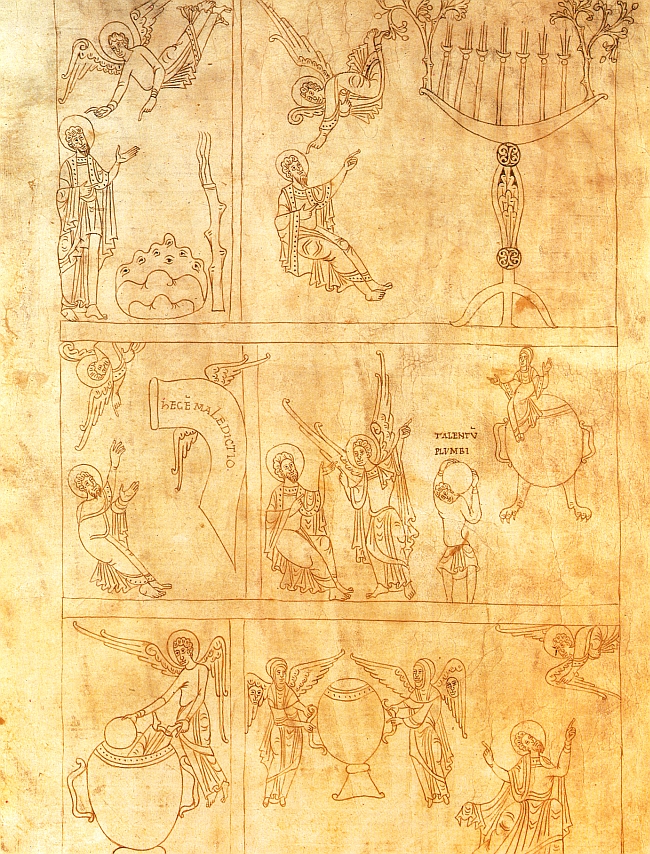 hECĒ MALEDICTIO.
TALENTŪ
PLUMBI